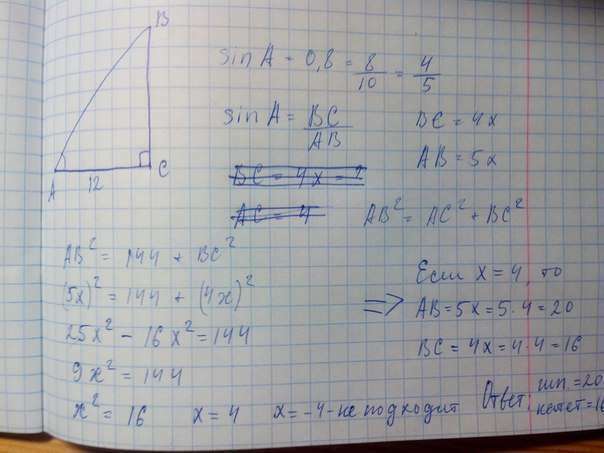 B
A 12 C
sin A = 0,8 = 8/10 = 4/5
sin A = BC/AB
BC = 4x
AB = 5x
BC = 4x = ?
AC = 4
AB² = AC² + BC²
AB² = 144 + BC²
(5x)² = 144 + (4x)²
25x² - 16x² = 144
9x² = 144
x² = 16 x = 4 x = -4 - не подходит
=> Если x = 4, то
AB = 5x = 5 · 4 = 20
BC = 4x = 4 · 4 = 16
Ответ: гип. = 20
катет = 16